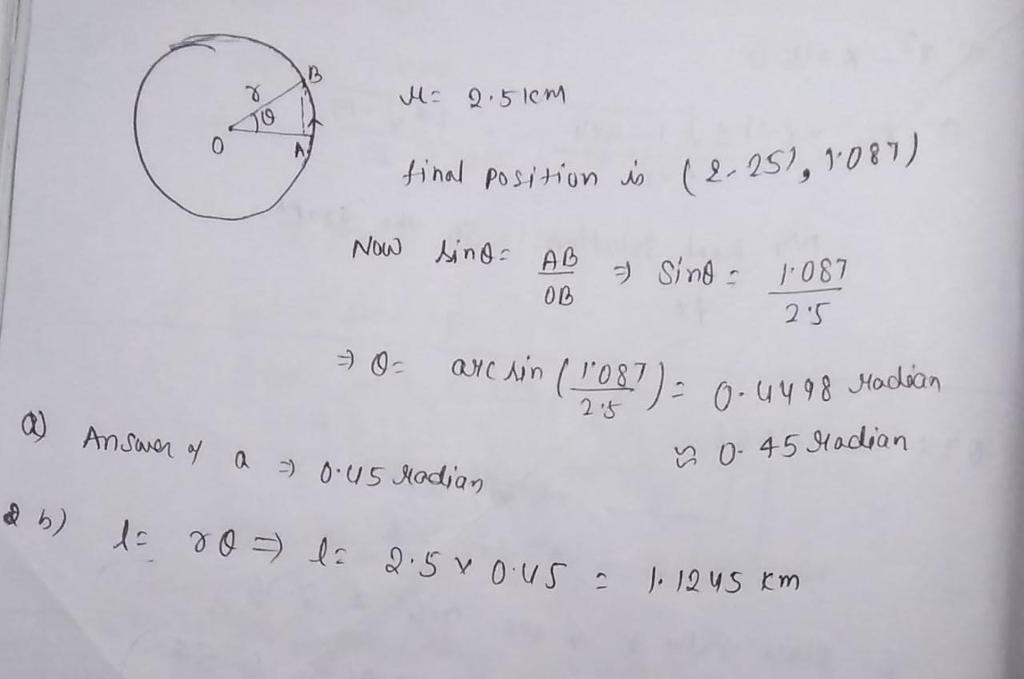 B
r
θ
O
A
r = 2.5 km
final position is (2.251, 1.087)
Now sinθ = AB/OB ⇒ Sinθ = 1.087/2.5
⇒ θ = arc sin (1.087/2.5) = 0.4498 radian
≈ 0.45 radian
a) Answer of a ⇒ 0.45 radian
b) l = rθ ⇒ l = 2.5 × 0.45 = 1.1245 km